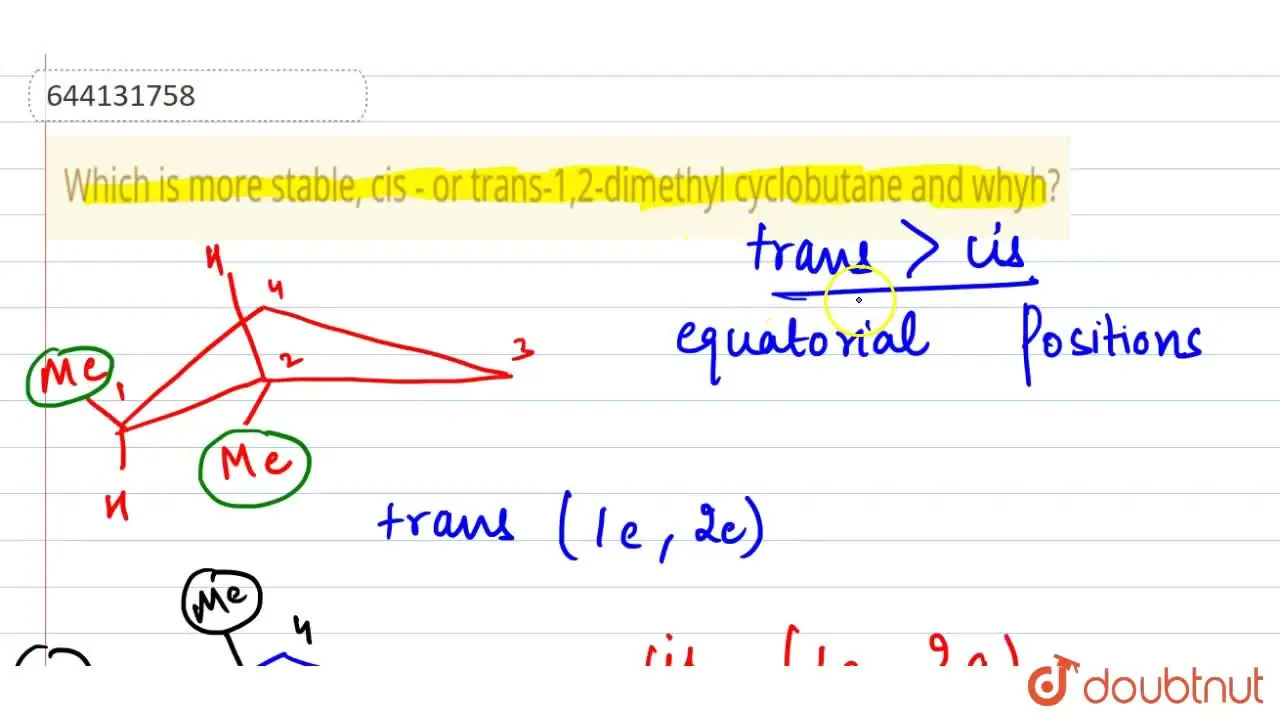 644131758
Which is more stable, cis - or trans-1,2-dimethyl cyclobutane and whyh?
trans > cis
equatorial Positions
H
4
2
3
Me
1
Me
H
trans (1e, 2e)
Me
4
cis
doubtnut